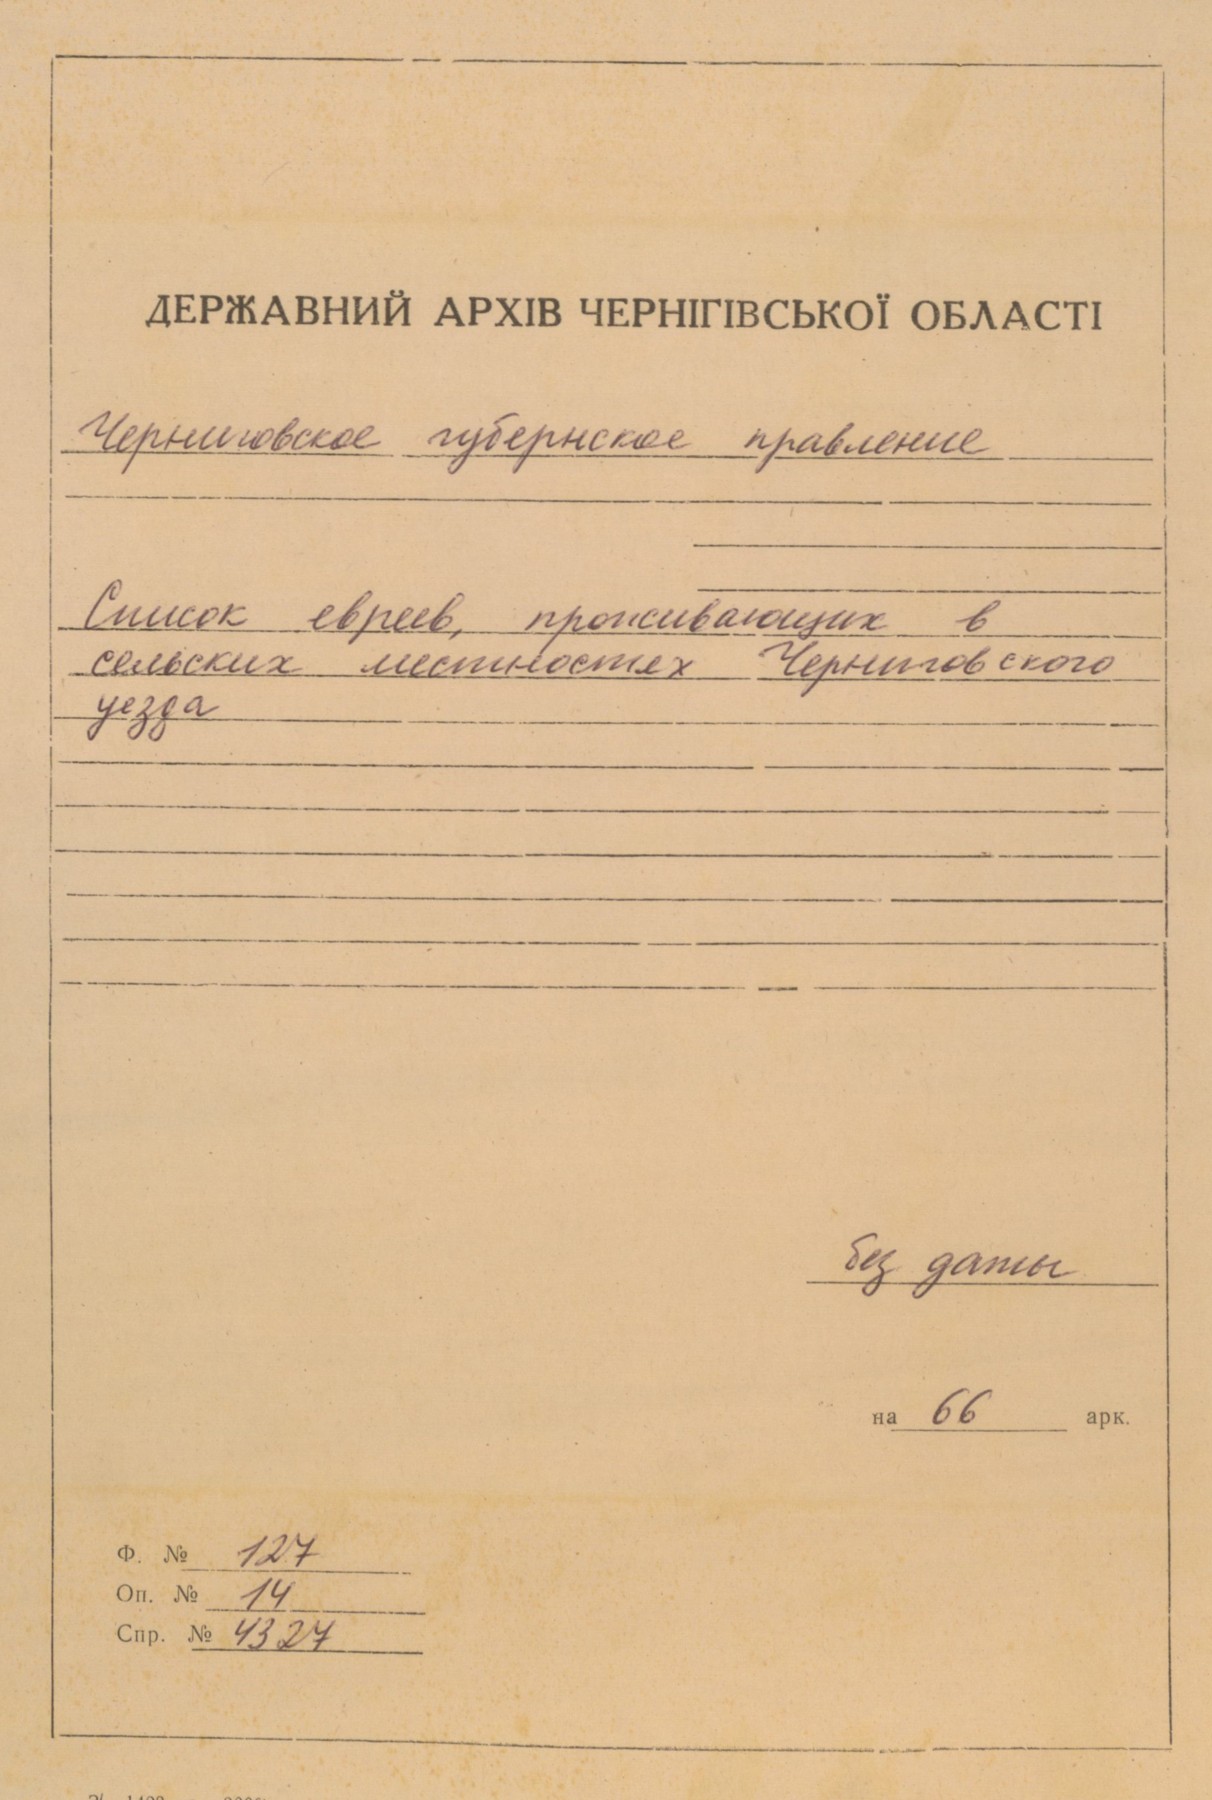 ДЕРЖАВНИЙ АРХІВ ЧЕРНІГІВСЬКОЇ ОБЛАСТІ
Черниговское губернское правление
Список евреев, проживающих в
сельских местностях Черниговского
уезда
без даты
на 66 арк.
Ф. № 127
Оп. № 14
Спр. № 4327